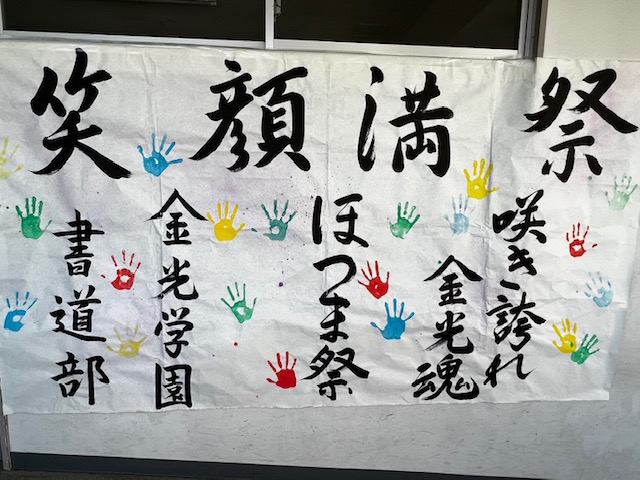 笑顔満祭
咲き誇れ
金光魂
ほつま祭
金光学園
書道部